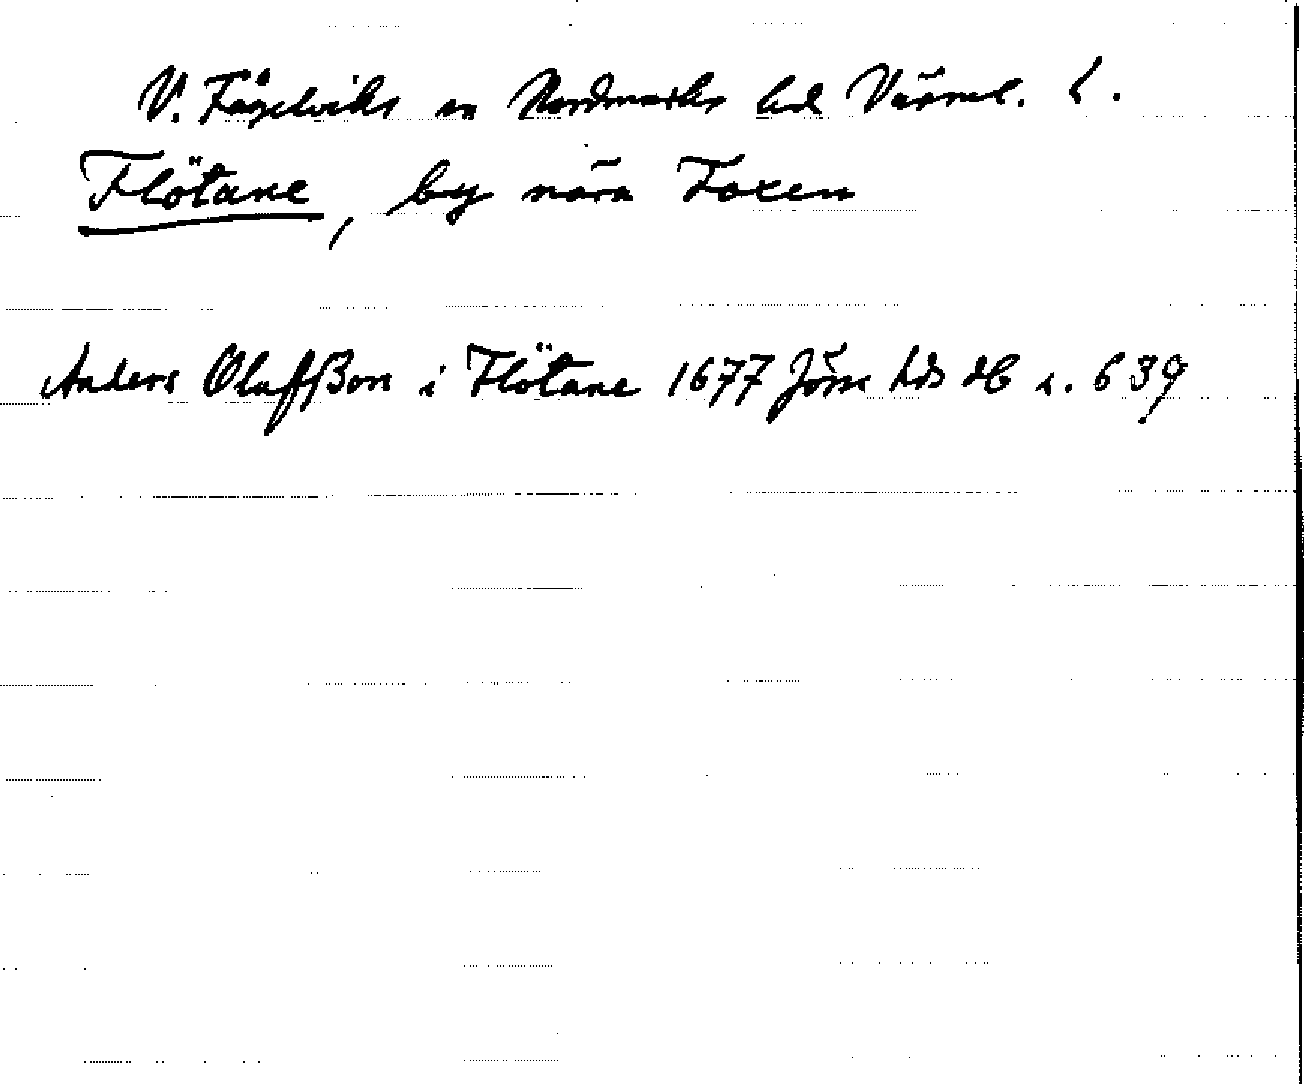 V. Fågelviks sn Nordmarks hd Värml. l.
Flötane, by nära Foxen
Anders Olufßon i Flötane 1677 Jösse hds db s. 639